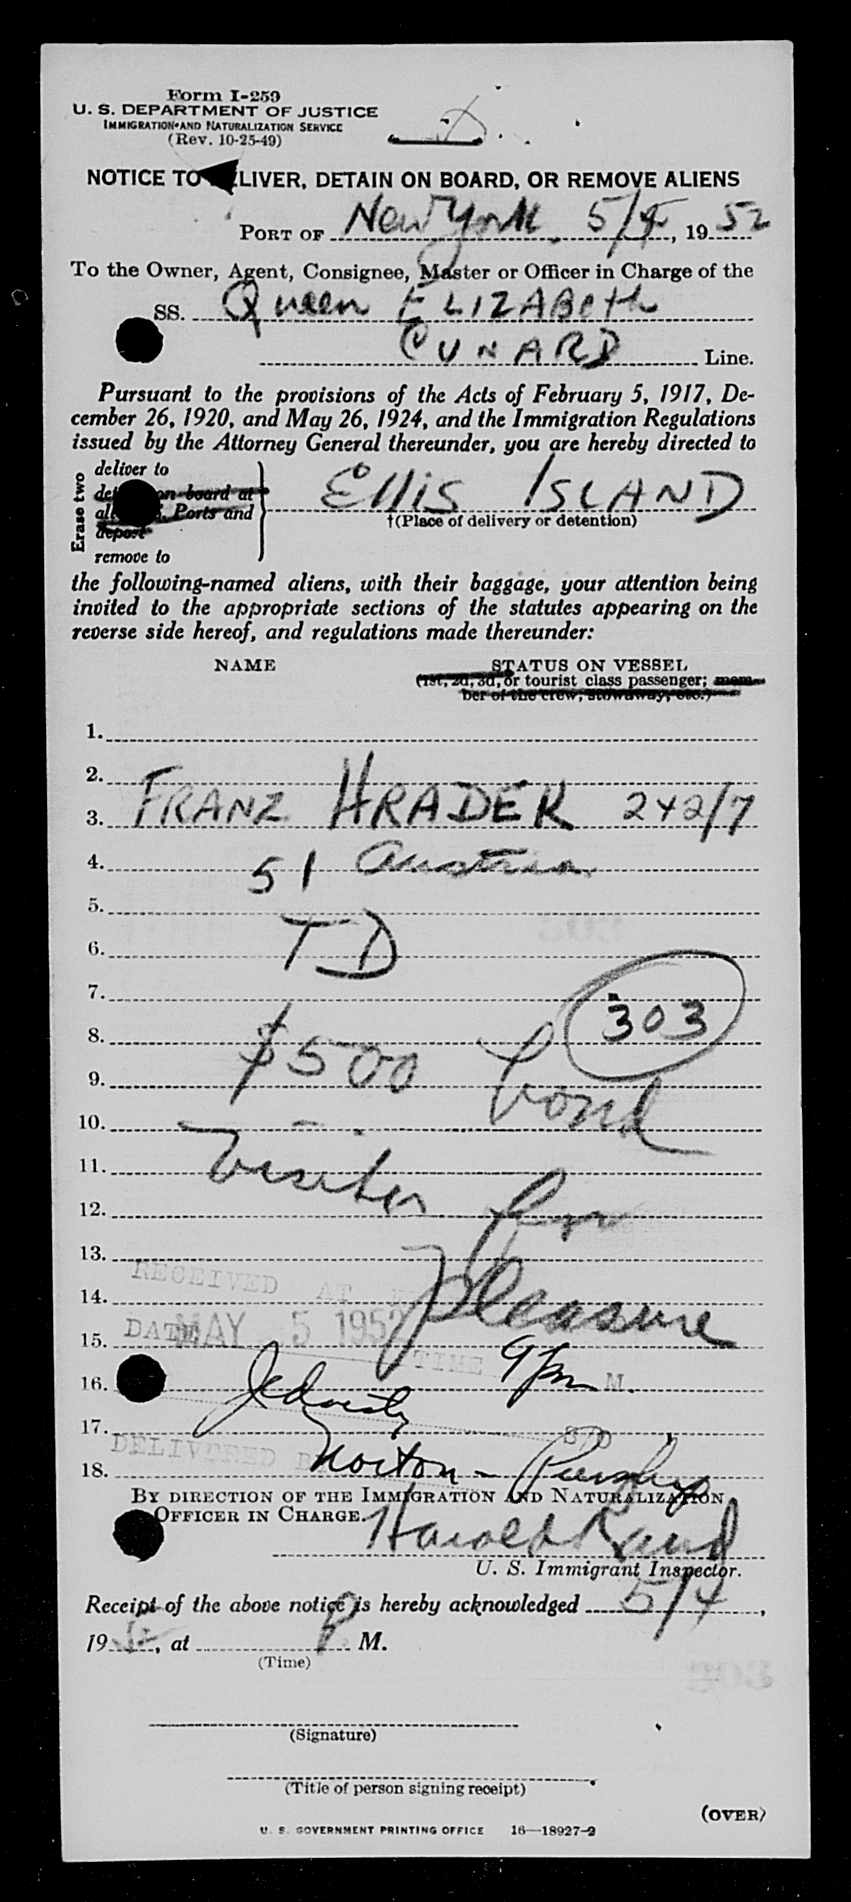 Form I-259
U. S. DEPARTMENT OF JUSTICE
IMMIGRATION AND NATURALIZATION SERVICE
(Rev. 10-25-49)
NOTICE TO LIVER, DETAIN ON BOARD, OR REMOVE ALIENS
PORT OF New York, 5/4, 1952
To the Owner, Agent, Consignee, Master or Officer in Charge of the
SS. Queen ELIZABEth
CUNARD Line.
Pursuant to the provisions of the Acts of February 5, 1917, De-
cember 26, 1920, and May 26, 1924, and the Immigration Regulations
issued by the Attorney General thereunder, you are hereby directed to
Erase two
deliver to
on board at
Ports and
depost
remove to
Ellis ISLAND
†(Place of delivery or detention)
the following-named aliens, with their baggage, your attention being
invited to the appropriate sections of the statutes appearing on the
reverse side hereof, and regulations made thereunder:
NAME STATUS ON VESSEL
(1st, 2d, 3d, or tourist class passenger; mem-
ber of the crew, stowaway, etc.)
1.
2.
3. FRANZ HRADEK 242/7
4. 51 Austria
5.
6. TD
7.
8. 303
9. $500 bond
10.
11. Visitor
12. for
13. RECEIVED AT
14. pleasure
15. DATE MAY 5 1952 TIME 9 pm M.
16.
17.
DELIVERED
18. Norton -
BY DIRECTION OF THE IMMIGRATION AND NATURALIZATION
OFFICER IN CHARGE.
Harold Rand
U. S. Immigrant Inspector.
Receipt of the above notice is hereby acknowledged 5/4,
1952, at P M.
(Time)
(Signature)
(Title of person signing receipt)
(OVER)
U. S. GOVERNMENT PRINTING OFFICE 16—18927-2